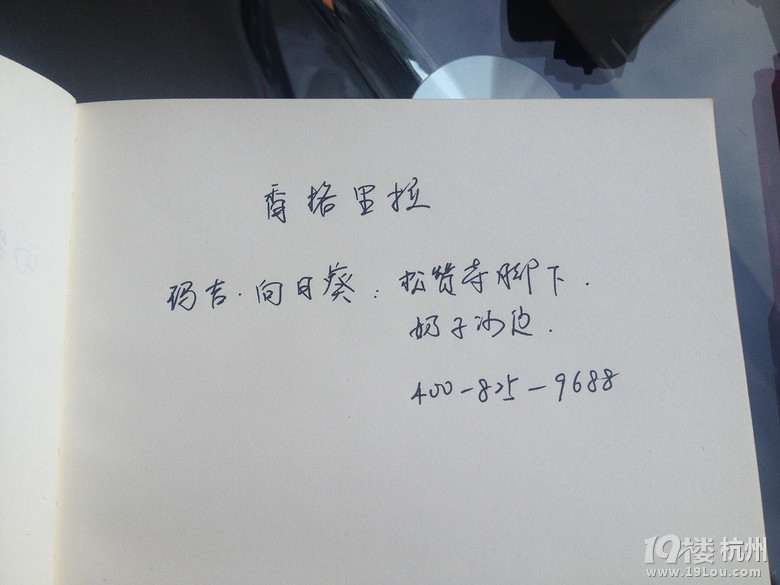 香格里拉
玛吉·向日葵：松赞寺脚下.
奶子河边.
400-825-9688
19楼 杭州
www.19Lou.com